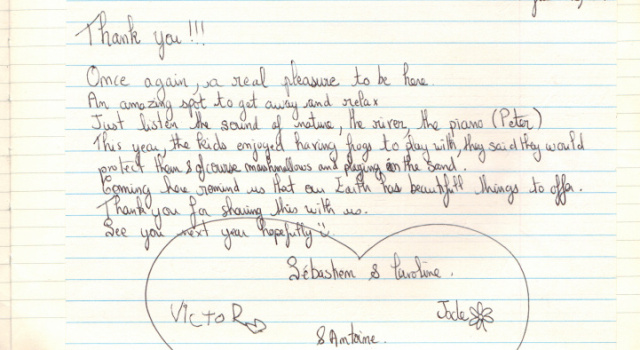 Thank you!!!
Once again, a real pleasure to be here.
An amazing spot to get away and relax
Just listen the sound of nature, the river, the piano (Peter)
This year, the kids enjoyed having frogs to play with, they said they would
protect them & of course marshmallows and playing in the sand.
Coming here remind us that our Earth has beautifull things to offer.
Thank you for sharing this with us.
See you next year hopefully
Sébastien & Caroline.
VICTOR
Jade
& Antoine.